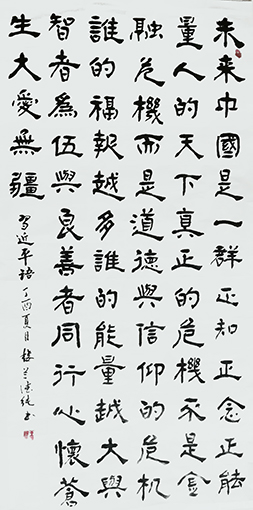 未来中國是一群正知正念正能
量人的天下真正的危機不是金
融危機而是道德與信仰的危机
誰的福報越多誰的能量越大與
智者為伍與良善者同行心懷蒼
生大愛無疆
習近平語丁酉夏月